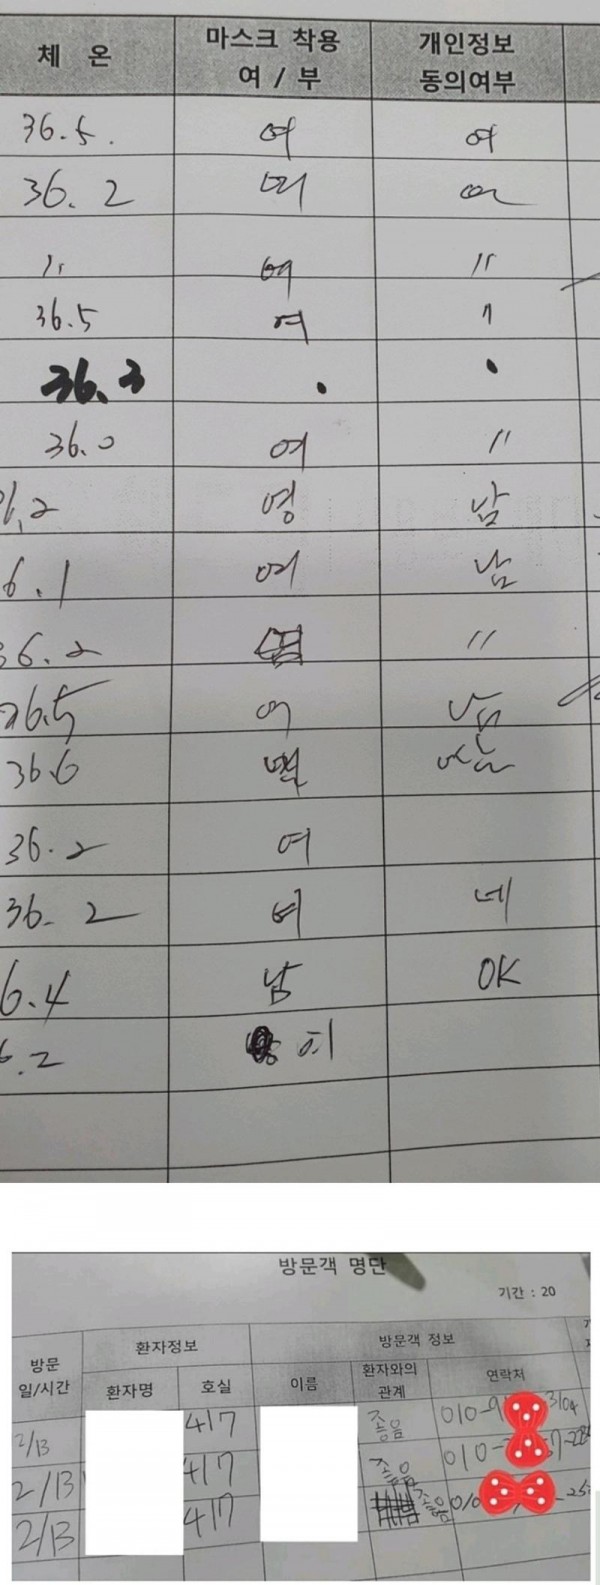 체 온 마스크 착용 여 / 부 개인정보 동의여부
36.5. 여 여
36.2 여
〃 여 〃
36.5 여 〃
36.3 . .
36.0 여 〃
영 남
6.1 여 남
36.2 〃
36.5 여 남
36.6
36.2 여
36.2 여 네
6.4 남 OK
6.2
방문객 명단
기간 : 20
방문 일/시간 환자정보 방문객 정보
환자명 호실 이름 환자와의 관계 연락처
2/13 417 좋음 010-9 3104
2/13 417 좋음 010-
2/13 417 좋음 010